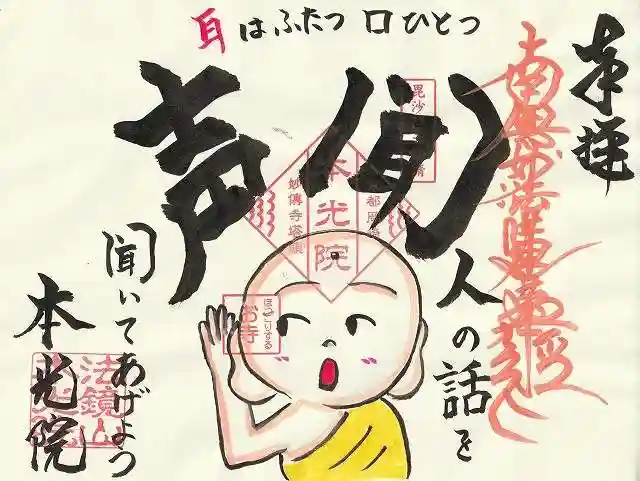 耳はふたつ 口ひとつ
奉拝
南無妙法蓮華経
声
人の話を
聞いてあげよう
本光院
本光院
妙傳寺塔頭
ほっこりする
お寺
法鏡山